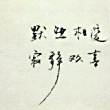 默然相爱
寂静欢喜